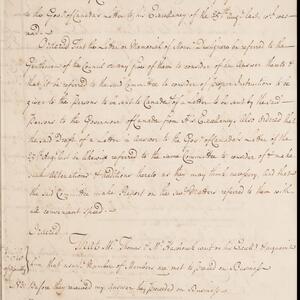 to the Gov.r of Canadas Letter to his Excellency of the 25th Aug.t last, wch. was
read.
Ordered That the Letter or Memorial of Mons.r be referred to the
Gentlemen of the Council or any five of them to consider of an Answer thereto &
that it be referred to the said Committee to consider of proper Instructions to be
given to the persons to be sent to Canada & of a Letter to be sent by the said
Persons to the Governour of Canada from his Excellency. Also Ordered that
the said Draft of a Letter in Answer to the Gov.r of Canadas Letter of the
25 Aug.t last be likewise referred to the same Committee to consider of & make
such Alterations & Additions thereto as they may think necessary, And that
the said Committee make Report on the sev.l Matters referred to them with
all convenient speed.
Mess.rs Mr. Thomas & Mr. went to his Excell.y & acquaint
him that Number of Members are met to proceed on Business
Before they received any Answer they proceeded on Business